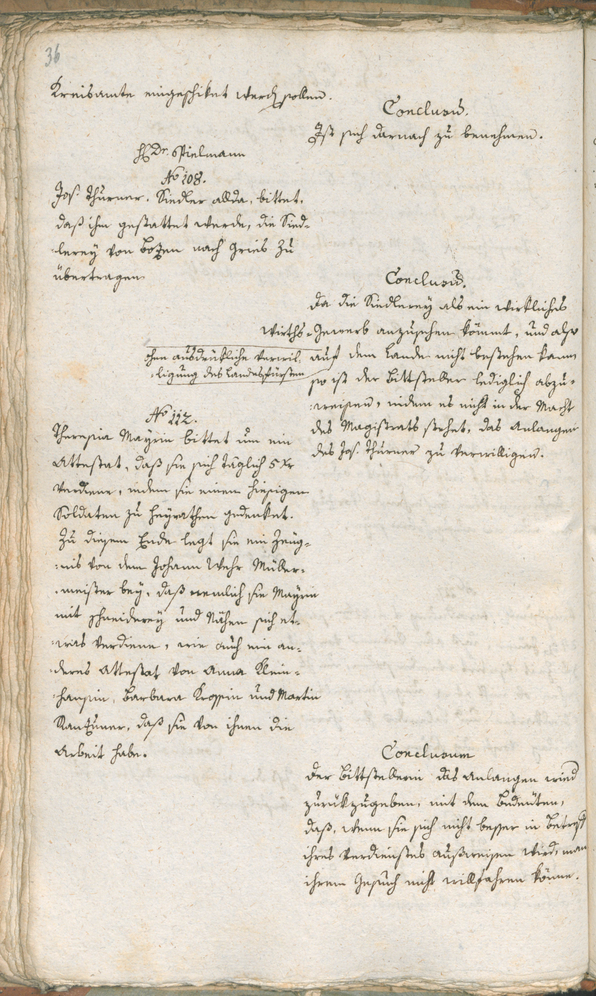 36
Kreisamte eingeschiket werden sollen.
Conclusum.
Ist sich darnach zu benehmen.
H Dr. Spielmann
No 108.
Jos. Thurner, Siedler allda, bittet,
daß ihm gestattet werde, die Sied=
lerey von Bozen nach Gries zu
übertragen.
Conclusum.
Da die Siedlerey als ein wirkliches
Wirths=Gewerb anzusehen kömmt, und also
ohne ausdrükliche Verwil=
ligung des Landesfürsten
auf dem Lande nicht bestehen kann
so ist der Bittsteller lediglich abzu=
weisen, indem es nicht in der Macht
des Magistrats stehet, das Anlangen
des Jos. Thurner zu verwilligen.
No 112.
Theresia Mayrin bittet um ein
Attestat, daß sie sich täglich 5 Xr
verdiene, indem sie einem hiesigen
Soldaten zu heyrathen gedenket.
Zu diesem Ende legt sie ein Zeug=
nis von dem Johann Wehr Müller=
meister bey, daß nemlich sie Mayrin
mit schneiderey und Nähen sich et=
was verdiene, wie auch ein an=
deres Attestat von Anna Klein=
hansin, Barbara Kroppin und Martin
Ranzinner, daß sie von ihnen die
Arbeit habe.
Conclusum
Der Bittstellerin das Anlangen wird
zurükzugeben, mit dem Bedeuten,
daß, wenn sie sich nicht besser in Betreff
ihres Verdienstes ausweisen wird, man
ihrem Gesuch nicht willfahren könne.